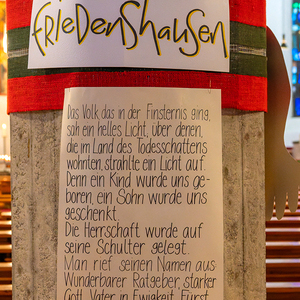 FRIEDENSHAUSEN
Das Volk das in der Finsternis ging,
sah ein helles Licht, über denen,
die im Land des Todesschattens
wohnten, strahlte ein Licht auf.
Denn ein Kind wurde uns ge-
boren, ein Sohn wurde uns
geschenkt.
Die Herrschaft wurde auf
seine Schulter gelegt.
Man rief seinen Namen aus:
Wunderbarer Ratgeber, starker
Gott, Vater in Ewigkeit, Fürst